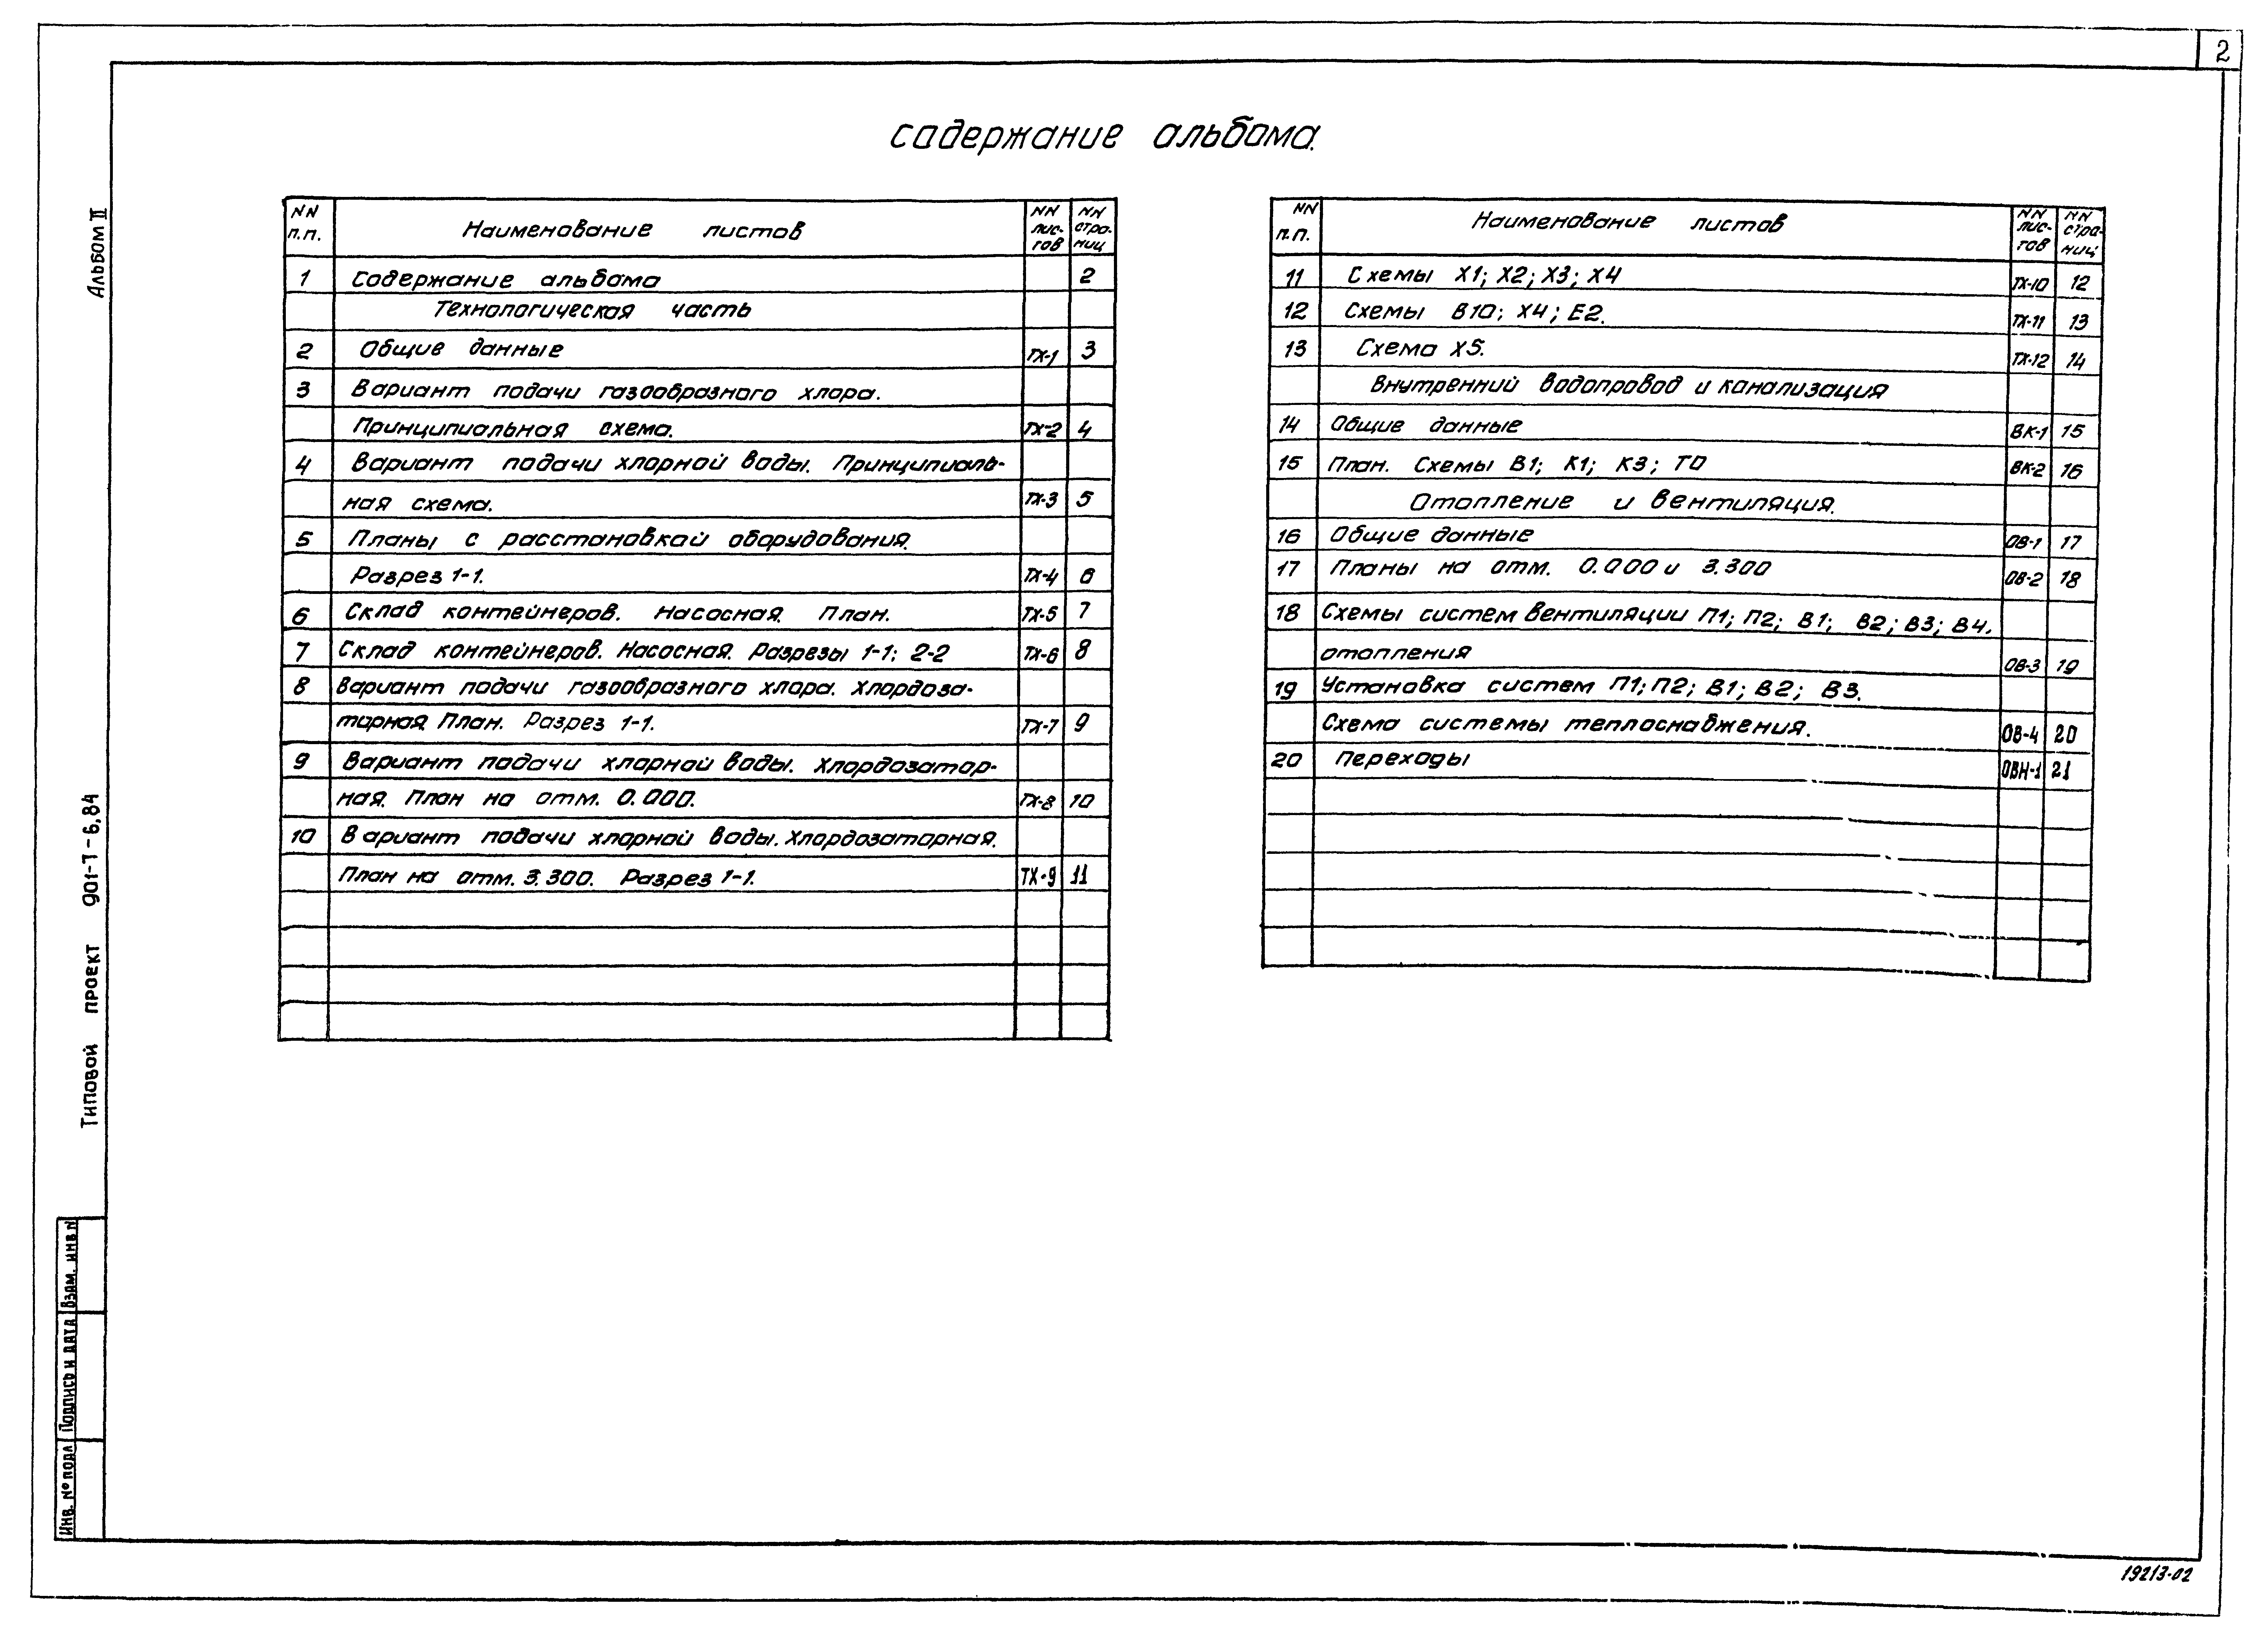 2
Содержание альбома.
Альбом II
Типовой проект 901-7-6.84
Взам. инв N
Подпись и дата
Инв. № подл
NN п.п. Наименование листов NN лис-тов NN стра-ниц
1 Содержание альбома 2
Технологическая часть
2 Общие данные ТХ-1 3
3 Вариант подачи газообразного хлора.
Принципиальная схема. ТХ-2 4
4 Вариант подачи хлорной воды. Принципиаль-
ная схема. ТХ-3 5
5 Планы с расстановкой оборудования.
Разрез 1-1. ТХ-4 6
6 Склад контейнеров. Насосная. План. ТХ-5 7
7 Склад контейнеров. Насосная. Разрезы 1-1; 2-2 ТХ-6 8
8 Вариант подачи газообразного хлора. Хлордоза-
торная. План. Разрез 1-1. ТХ-7 9
9 Вариант подачи хлорной воды. Хлордозатор-
ная. План на отм. 0.000. ТХ-8 10
10 Вариант подачи хлорной воды. Хлордозаторная.
План на отм. 3.300. Разрез 1-1. ТХ-9 11
NN п.п. Наименование листов NN лис-тов NN стра-ниц
11 Схемы Х1; Х2; Х3; Х4 ТХ-10 12
12 Схемы В10; Х4; Е2. ТХ-11 13
13 Схема Х5. ТХ-12 14
Внутренний водопровод и канализация
14 Общие данные ВК-1 15
15 План. Схемы В1; К1; К3; Т0 ВК-2 16
Отопление и вентиляция.
16 Общие данные ОВ-1 17
17 Планы на отм. 0.000 и 3.300 ОВ-2 18
18 Схемы систем вентиляции П1; П2; В1; В2; В3; В4.
отопления ОВ-3 19
19 Установка систем П1; П2; В1; В2; В3.
Схема системы теплоснабжения. ОВ-4 20
20 Переходы ОВН-1 21
19213-02